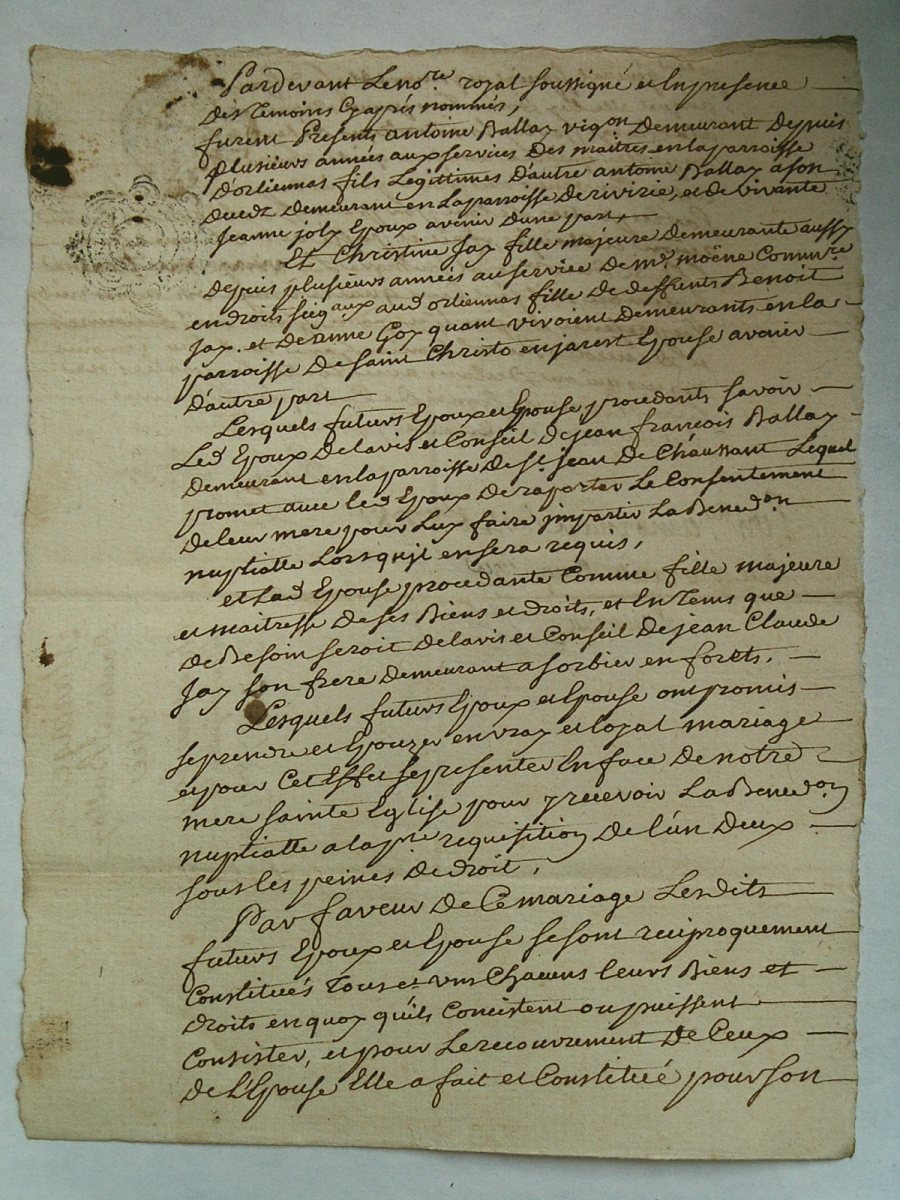 Pardevant Le no.re royal soussigné et En presence
des temoins Cy apres nommés,
furent Presents antoine Ballay vigon Demeurant Depuis
plusieurs années aux services Des maitres en la parroisse
D'orliennas fils Legittimes D'autre antoine Ballay a son
Demeurant en La parroisse De rivirie, et de vivante
Jeanne joly Epoux avenir Dune part,
Et Christine Jay fille majeure Demeurante aussy
Depuis plusieurs années au service De mr. moëne Comm.re
en droits seigaux aud orliennas fille De deffunts Benoit
Jay. et De anne Goy quant vivoient Demeurants en la
parroisse De Saint Christo en jarest Epouse avenir
D'autre part
Lesquels futurs Epoux et Epouse procedants savoir
Led Epoux De lavis et Conseil De jean francois Ballay
Demeurant en la parroisse De st. jean De Chaussant Lequel
promet avec led Epoux De raporter Le Consentement
De leur mere pour Luy faire jmpartir La Bened.on
nuptialle Lorsqujl en sera requis,
et Lad Epouse procedante Comme fille majeure
et maitresse De ses Biens et droits, et En Tems que
De Besoin seroit De lavis et Conseil De jean Claude
Jay son frere Demeurant a sorbier en forets.
Lesquels futurs Epoux et Epouse ont promis
se prendre et Epouzer en vray et loyal mariage
et pour Cet Effet se presenter En face De notre
mere sainte Eglise pour y recevoir La Bened.on
nuptialle a la pre requisition De l'un Deux
sous les peines De droit,
Par faveur De Ce mariage Lesdits
futurs Epoux et Epouse se sont reciproquement
Constitués Tous et uns Chacuns leurs Biens et
droits en quoy qu'ils Concistent ou puissent
Consister, et pour Le recouvrement De Ceux
De l'Epouse Elle a fait et Constitué pour son